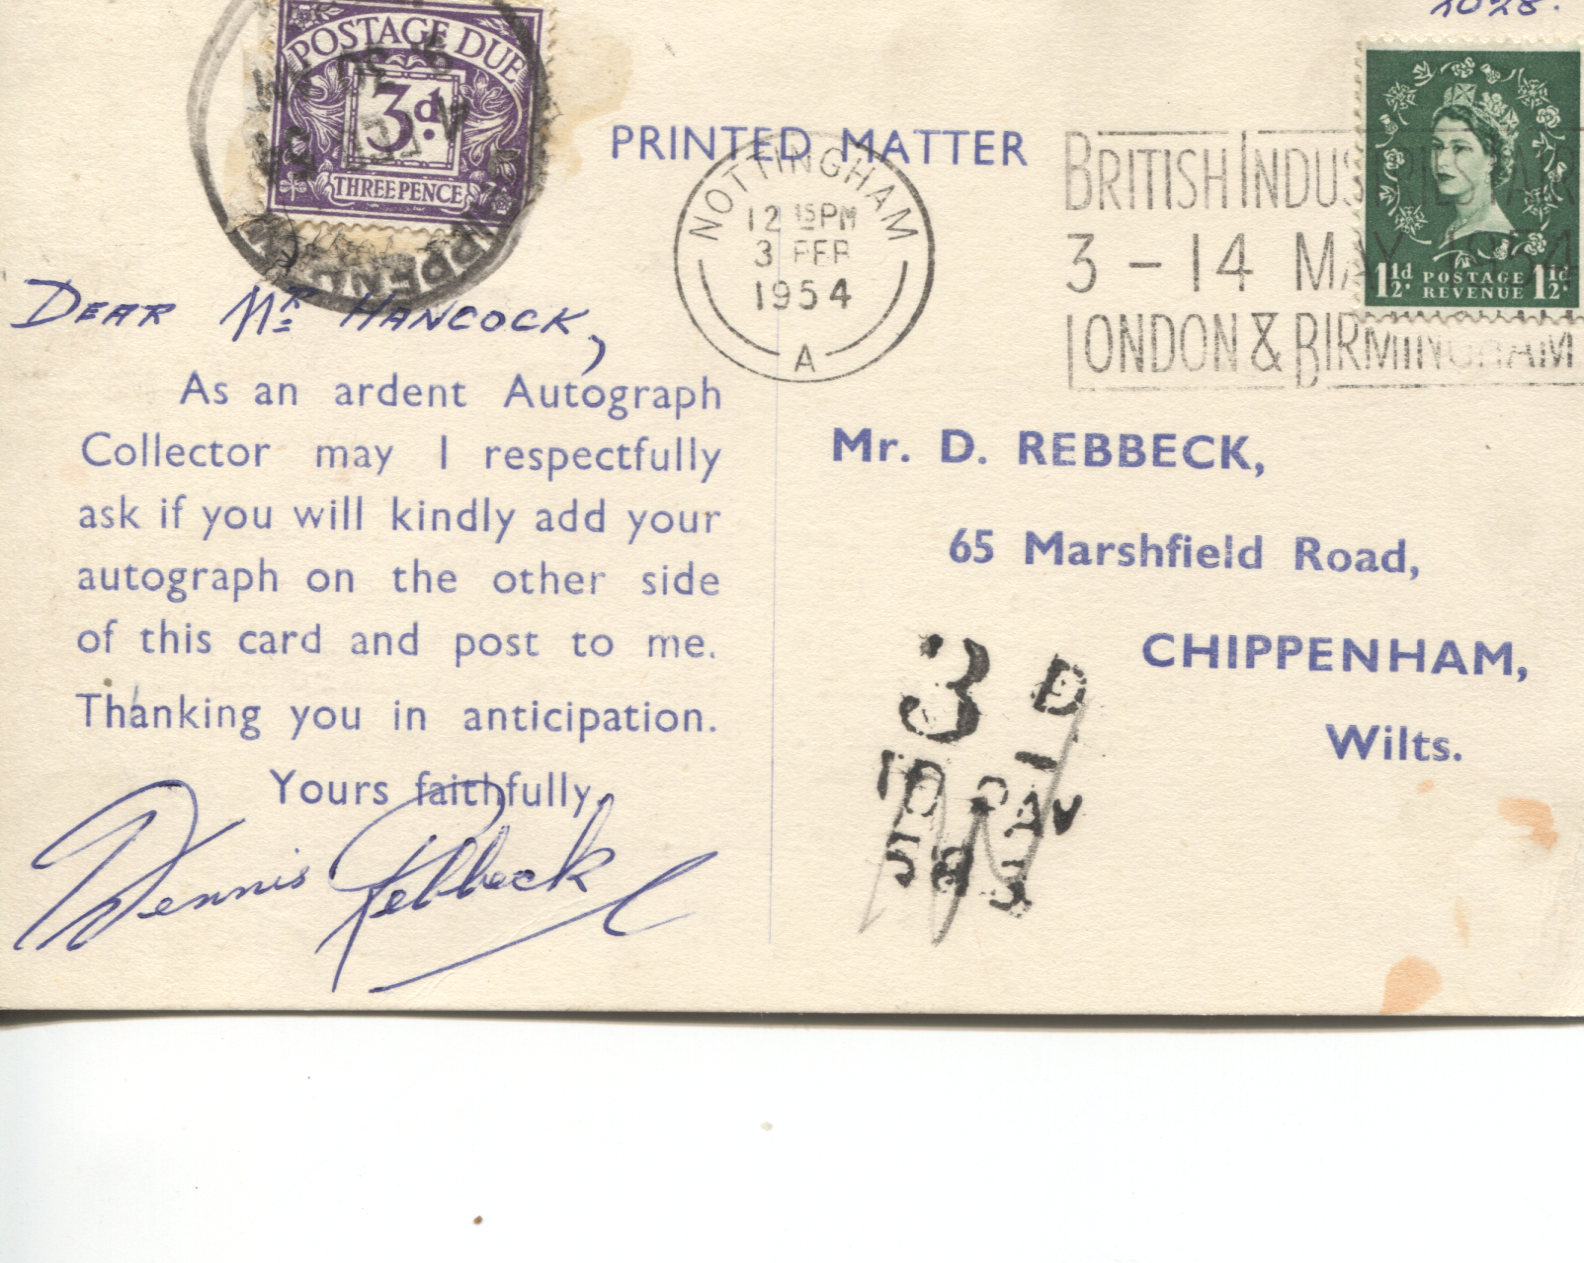 2028.
POSTAGE DUE
3d.
THREEPENCE
PRINTED MATTER
NOTTINGHAM
12 15 PM
3 FEB
1954
A
BRITISH INDUSTRIES FAIR
3 – 14 MAY 1954
LONDON & BIRMINGHAM
1½d POSTAGE REVENUE 1½d
DEAR Mr HANCOCK,
As an ardent Autograph
Collector may I respectfully
ask if you will kindly add your
autograph on the other side
of this card and post to me.
Thanking you in anticipation.
Yours faithfully,
Dennis Rebbeck
Mr. D. REBBECK,
65 Marshfield Road,
CHIPPENHAM,
Wilts.
3 D
TO PAY
583